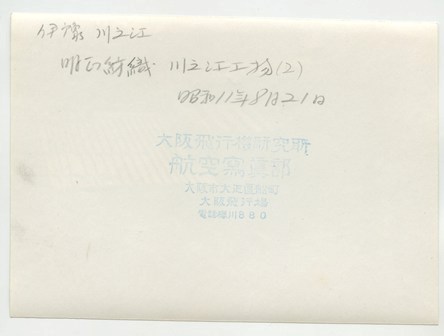 伊豫 川之江
明正紡織 川之江工場(2)
昭和11年8月21日
大阪飛行場研究所
航空寫眞部
大阪市大正區船町
大阪飛行場
電話櫻川880